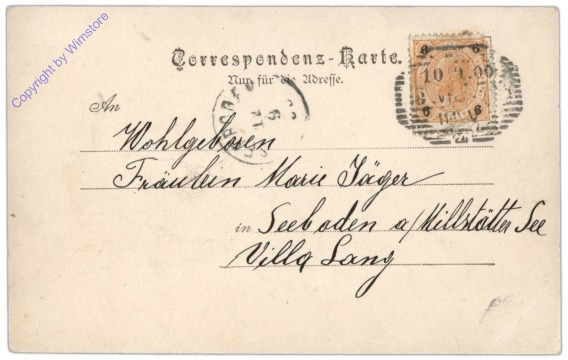 Copyright by Wimstore
Correspondenz-Karte.
Nur für die Adresse.
6 6
10 9.00
6 6
An
Wohlgeboren
Fräulein Marie Jäger
in Seeboden a/Millstätter See
Villa Lang